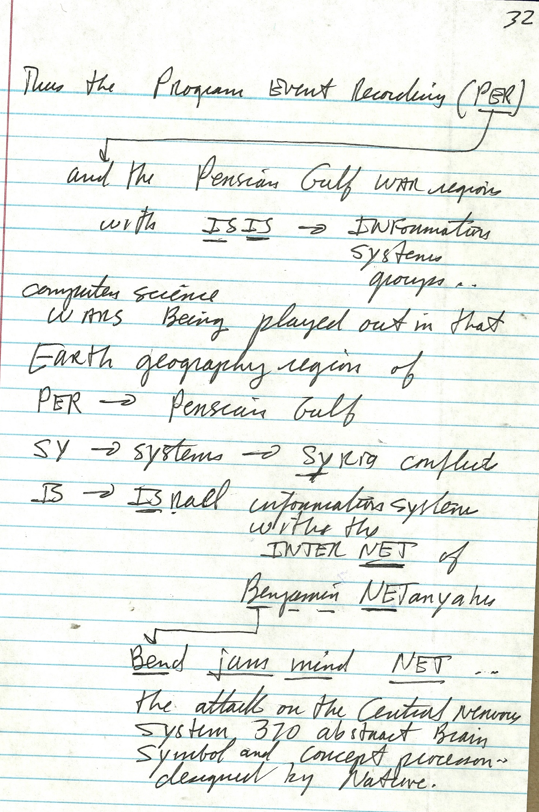 32
Thus the Program Event Recording (PER)
and the Persian Gulf WAR region
with ISIS → INFormation
systems
groups...
computer science
WARS Being played out in that
EARth geography region of
PER → Persian Gulf
SY → systems → SyRia conflict
IS → ISRael information system
with the
INTER NET of
Benjamin NETanyahu
Bend jams mind NET ...
the attack on the Central Nervous
System 370 abstract Brain
Symbol and concept processor
designed by Nature.